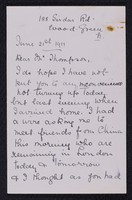 108 Road
Wood Green
N
June 21st 1911
Dear Mr Thompson,
I do hope I have not
put you to any inconvenience
not turning up today,
but last evening when
I arrived home, I had
a wire asking me to
meet friends from China
this morning who are
remaining in London
today & tomorrow
& I thought as you had